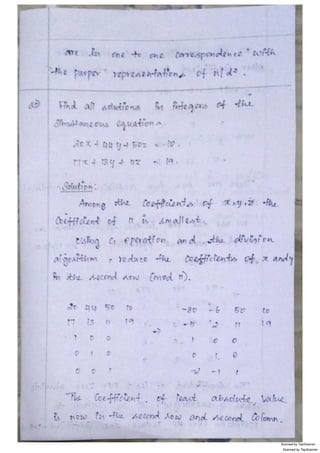 are in one to one correspondence with
the proper representations of n/d².
Find all solutions in integers of the
Simultaneous equations.
20x + 44y + 50z = 10.
17x + 13y + 11z = 19.
Solution:
Among the Coefficients of x, y, z the
Coefficient of 11 is smallest.
Using C₁ operation, and the division
algorithm, reduce the Coefficients of x and y
in the second row (mod 11).
20 44 50 10 -80 -6 50 10
17 13 11 19 → -5 2 11 19
1 0 0 1 0 0
0 1 0 0 1 0
0 0 1 -2 -1 1
The Coefficient of least absolute value
is now in the second row and second Column.
Scanned by TapScanner
Scanned by TapScanner